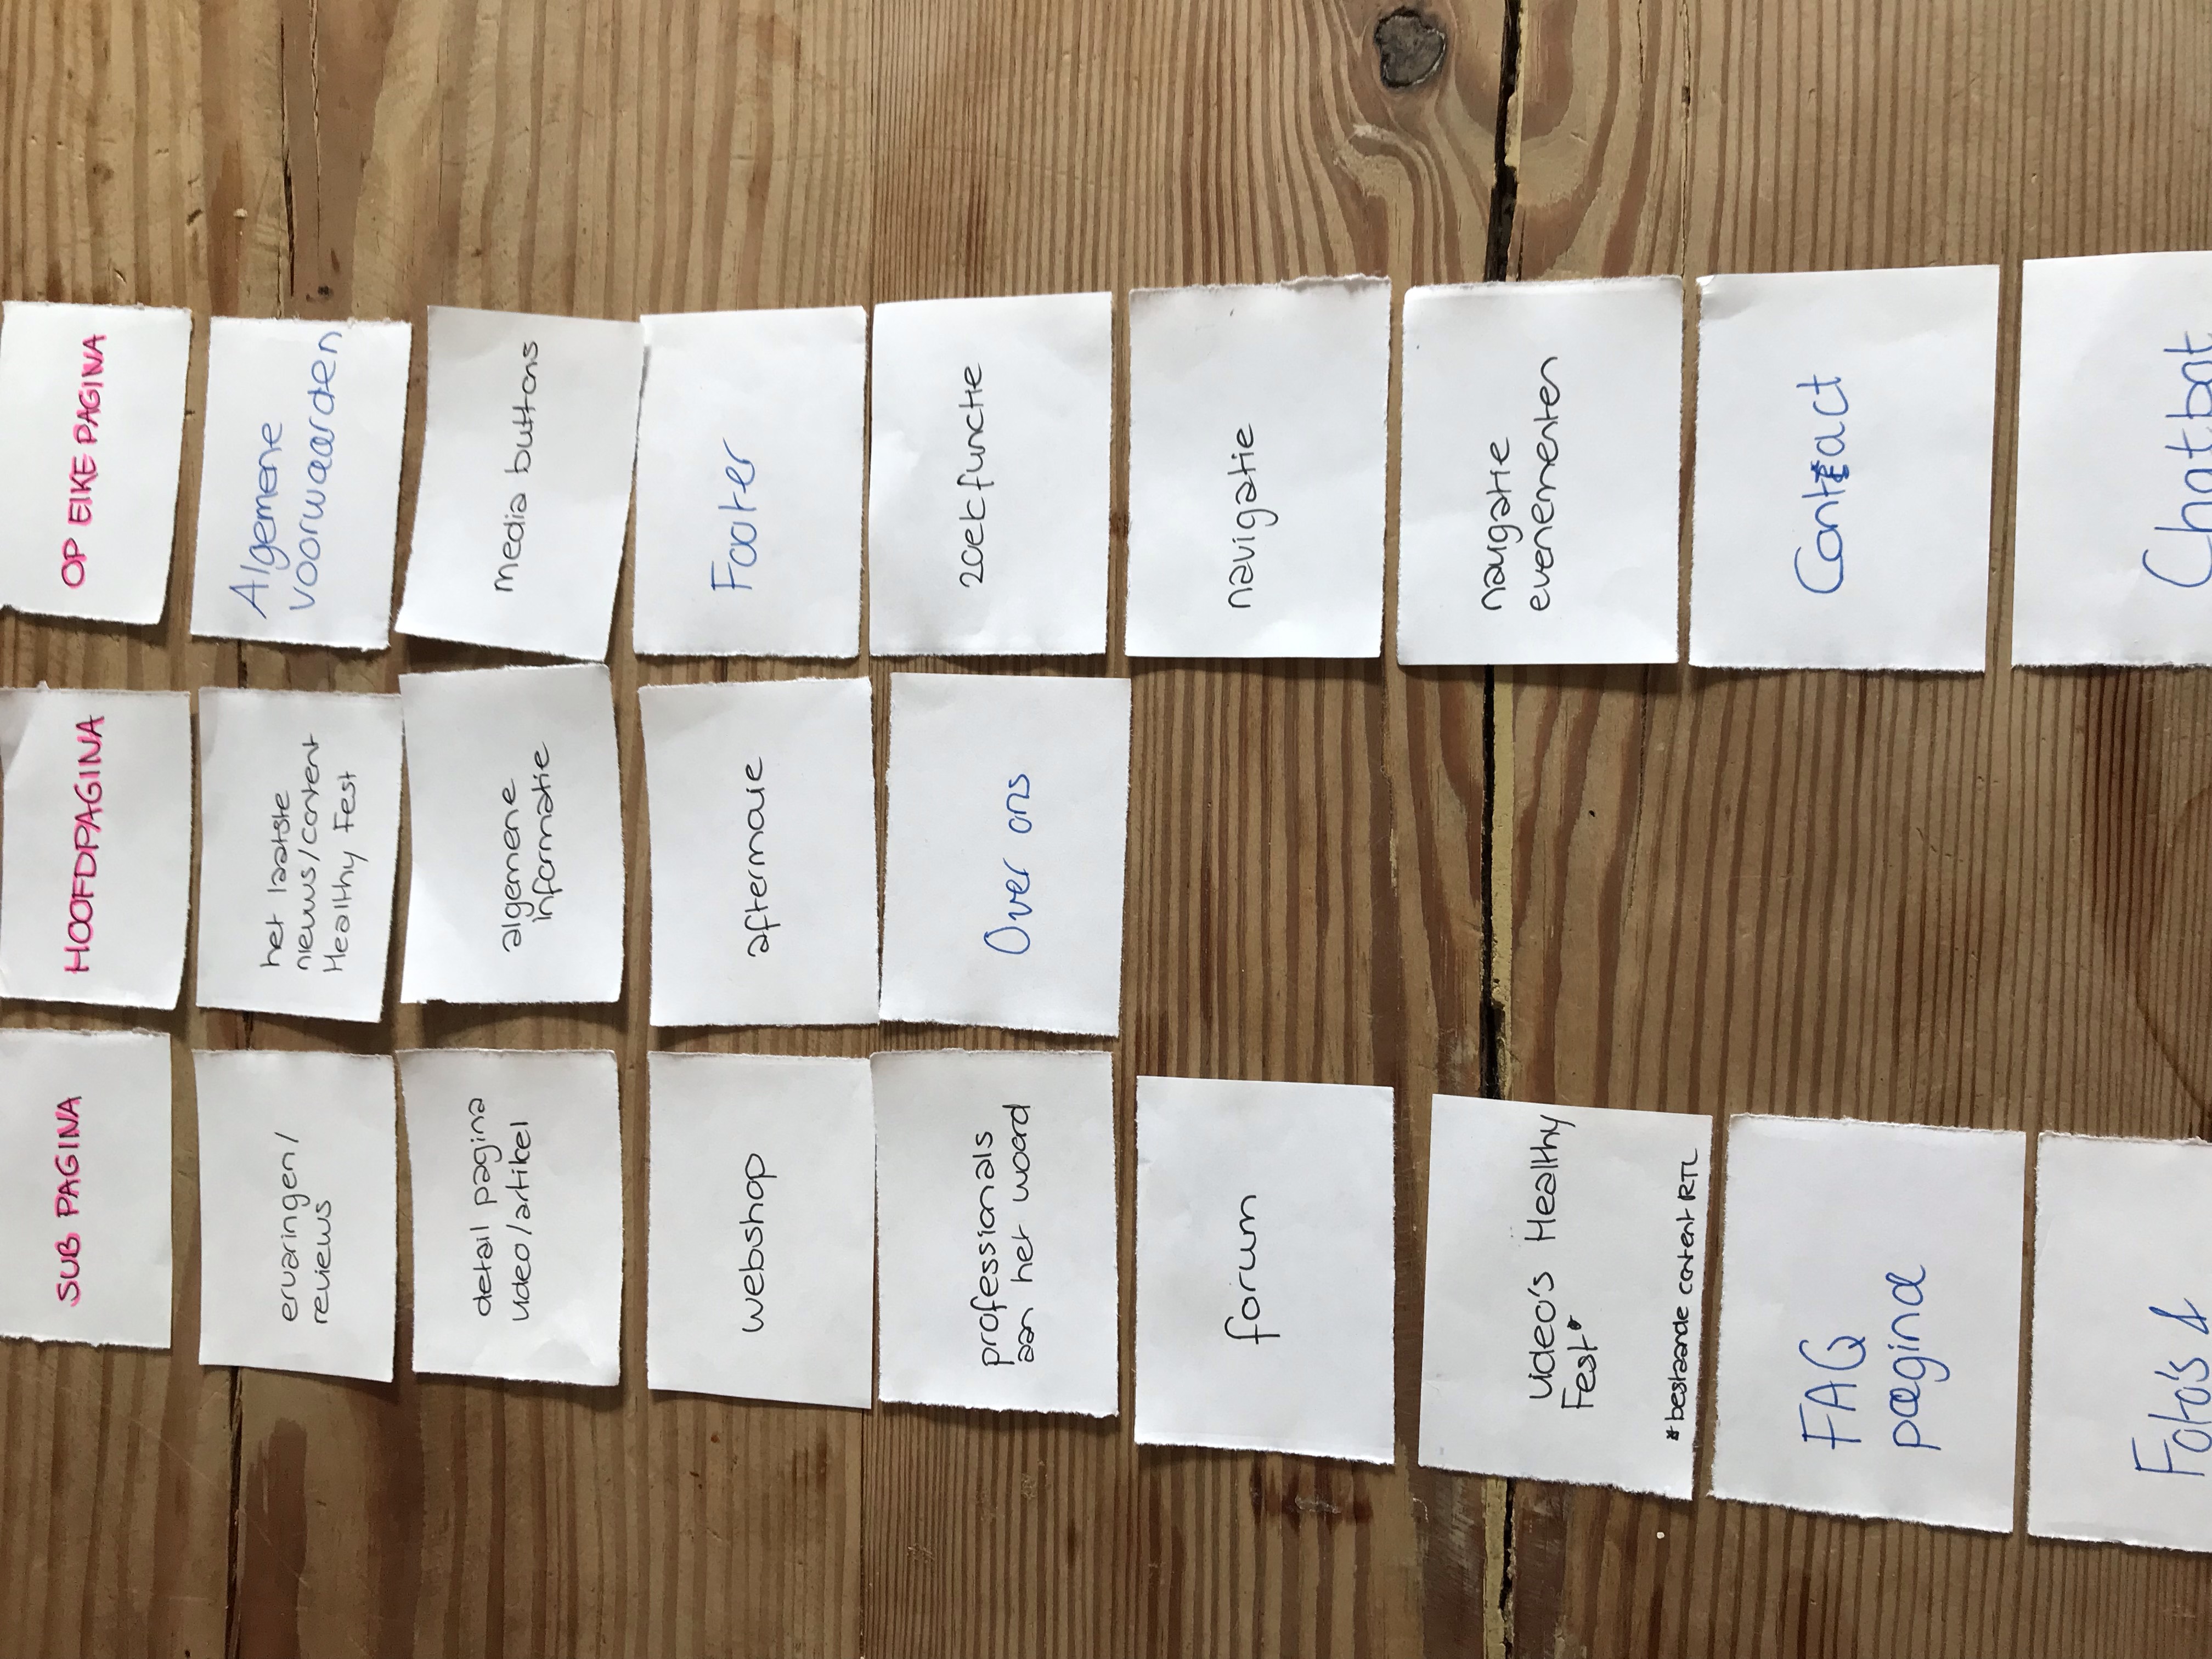 SUB PAGINA
ervaringen/
reviews
detail pagina
video/artikel
webshop
professionals
aan het woord
forum
video's Healthy
Fest*
*bestaande content RTL
FAQ
pagina
Foto's &
HOOFDPAGINA
het laatste
nieuws/content
Healthy Fest
algemene
informatie
aftermovie
Over ons
OP ELKE PAGINA
Algemene
voorwaarden
media buttons
Footer
zoekfunctie
navigatie
navigatie
evenementen
Contact
Chatbot